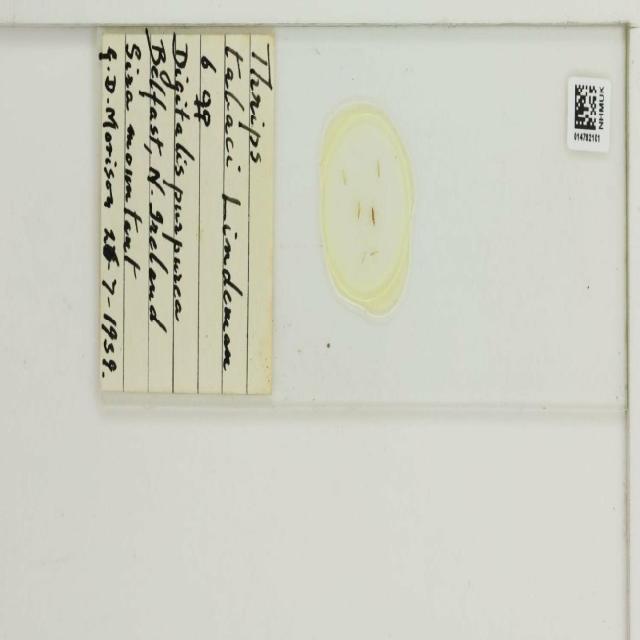 Thrips
tabaci Lindeman
6 ♀♀
Digitalis purpurea
Belfast, N. Ireland
Sira mountant
G. D. Morison 28 7-1938.
NHMUK
014782101